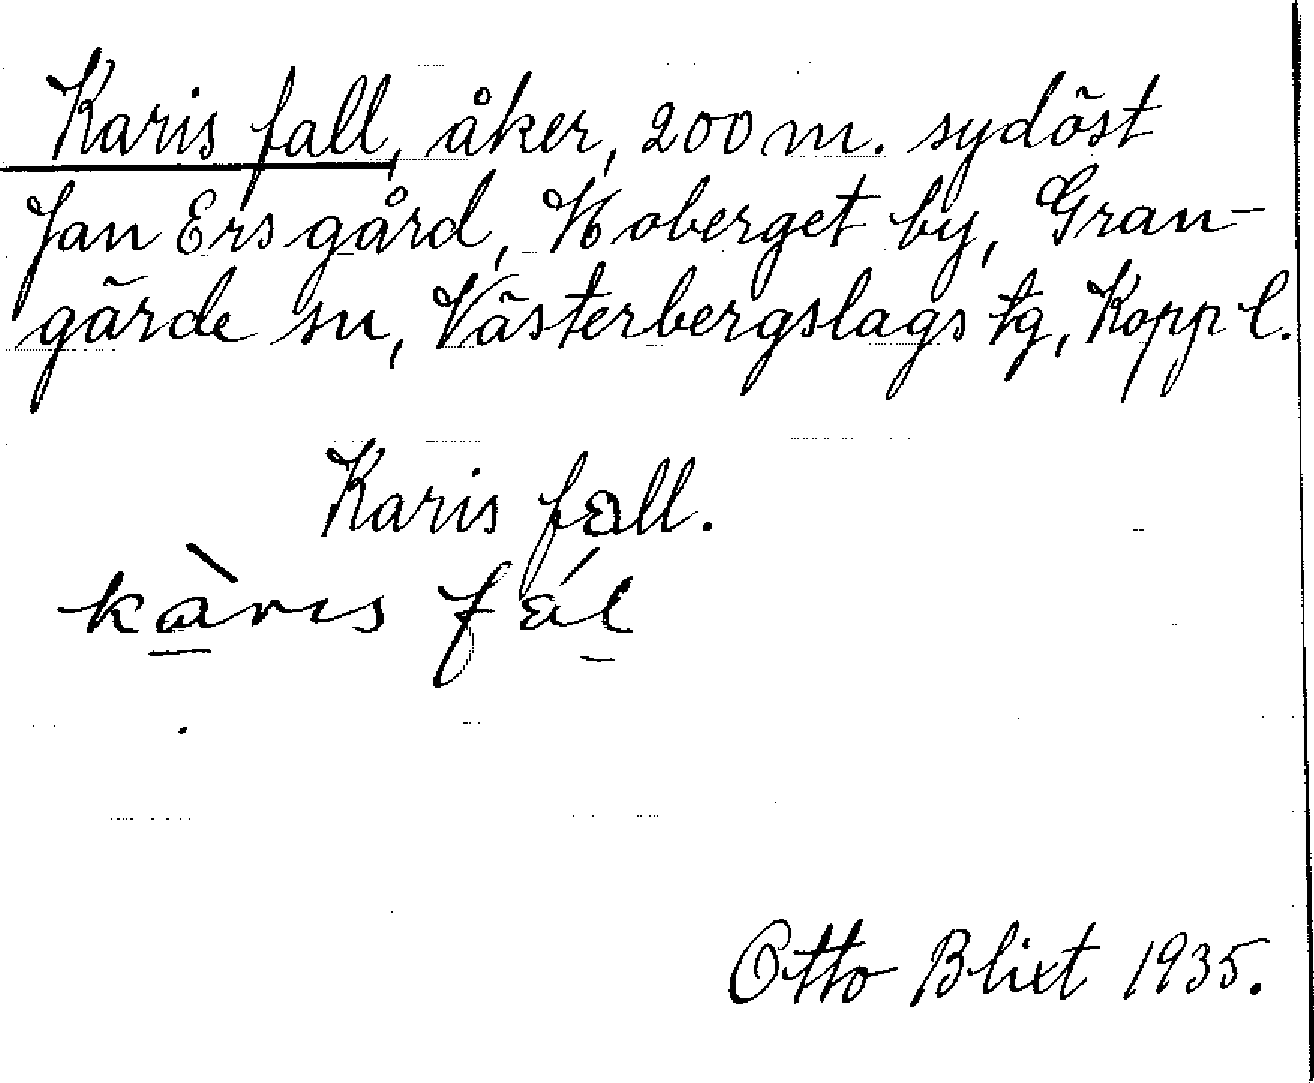 Karis fall, åker, 200 m. sydöst
Jan Ers gård, Hoberget by, Gran-
gärde sn, Västerbergslags tg, Kopp l.
Karis fall.
kàrɩs fál
Otto Blixt 1935.